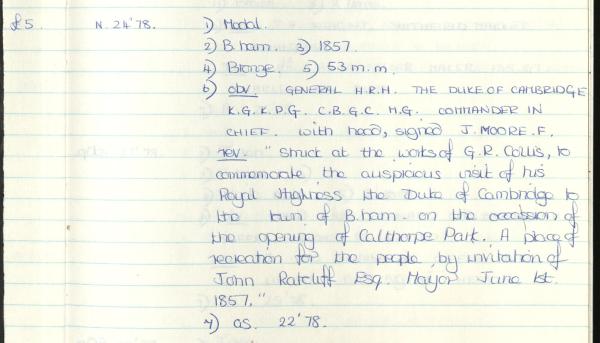 £5. N. 24'78. 1) Medal.
2) B.ham. 3) 1857.
4) Bronze. 5) 53 m.m.
6) obv GENERAL H.R.H. THE DUKE OF CAMBRIDGE
K.G.K.P.G. C.B.G.C. M.G. COMMANDER IN
CHIEF. with head, signed J. MOORE. F.
rev. "Struck at the works of G.R. Collis, to
commemorate the auspicious visit of his
Royal Highness the Duke of Cambridge to
the town of B.ham. on the occassion of
the opening of Calthorpe Park. A place of
recreation for the people, by invitation of
John Ratcliff Esq. Mayor June 1st.
1857."
7) as. 22'78.